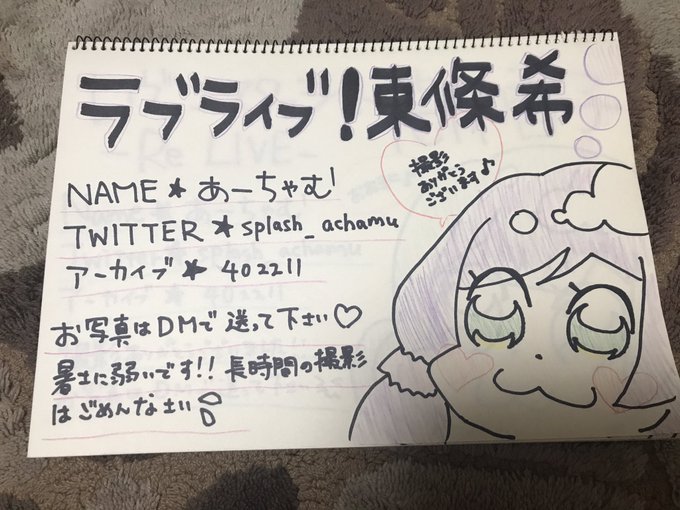 ラブライブ!東條希
撮影
ありがとう
ございます♪
NAME★あーちゃむ!
TWITTER★splash_achamu
アーカイブ★402211
お写真はDMで送って下さい♡
暑さに弱いです!!長時間の撮影
はごめんなさい